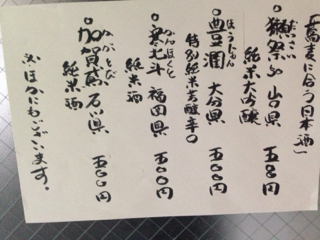 「蕎麦に合う日本酒」
だっさい
○獺祭50 山口県 五八〇円
純米大吟醸
ほうじゅん
○豊潤 大分県 五〇〇円
特別純米芳醇辛口
かんほくと
○寒北斗 福岡県 五〇〇円
純米酒
かがとび
○加賀鳶 石川県 五〇〇円
純米酒
※ほかにもございます。